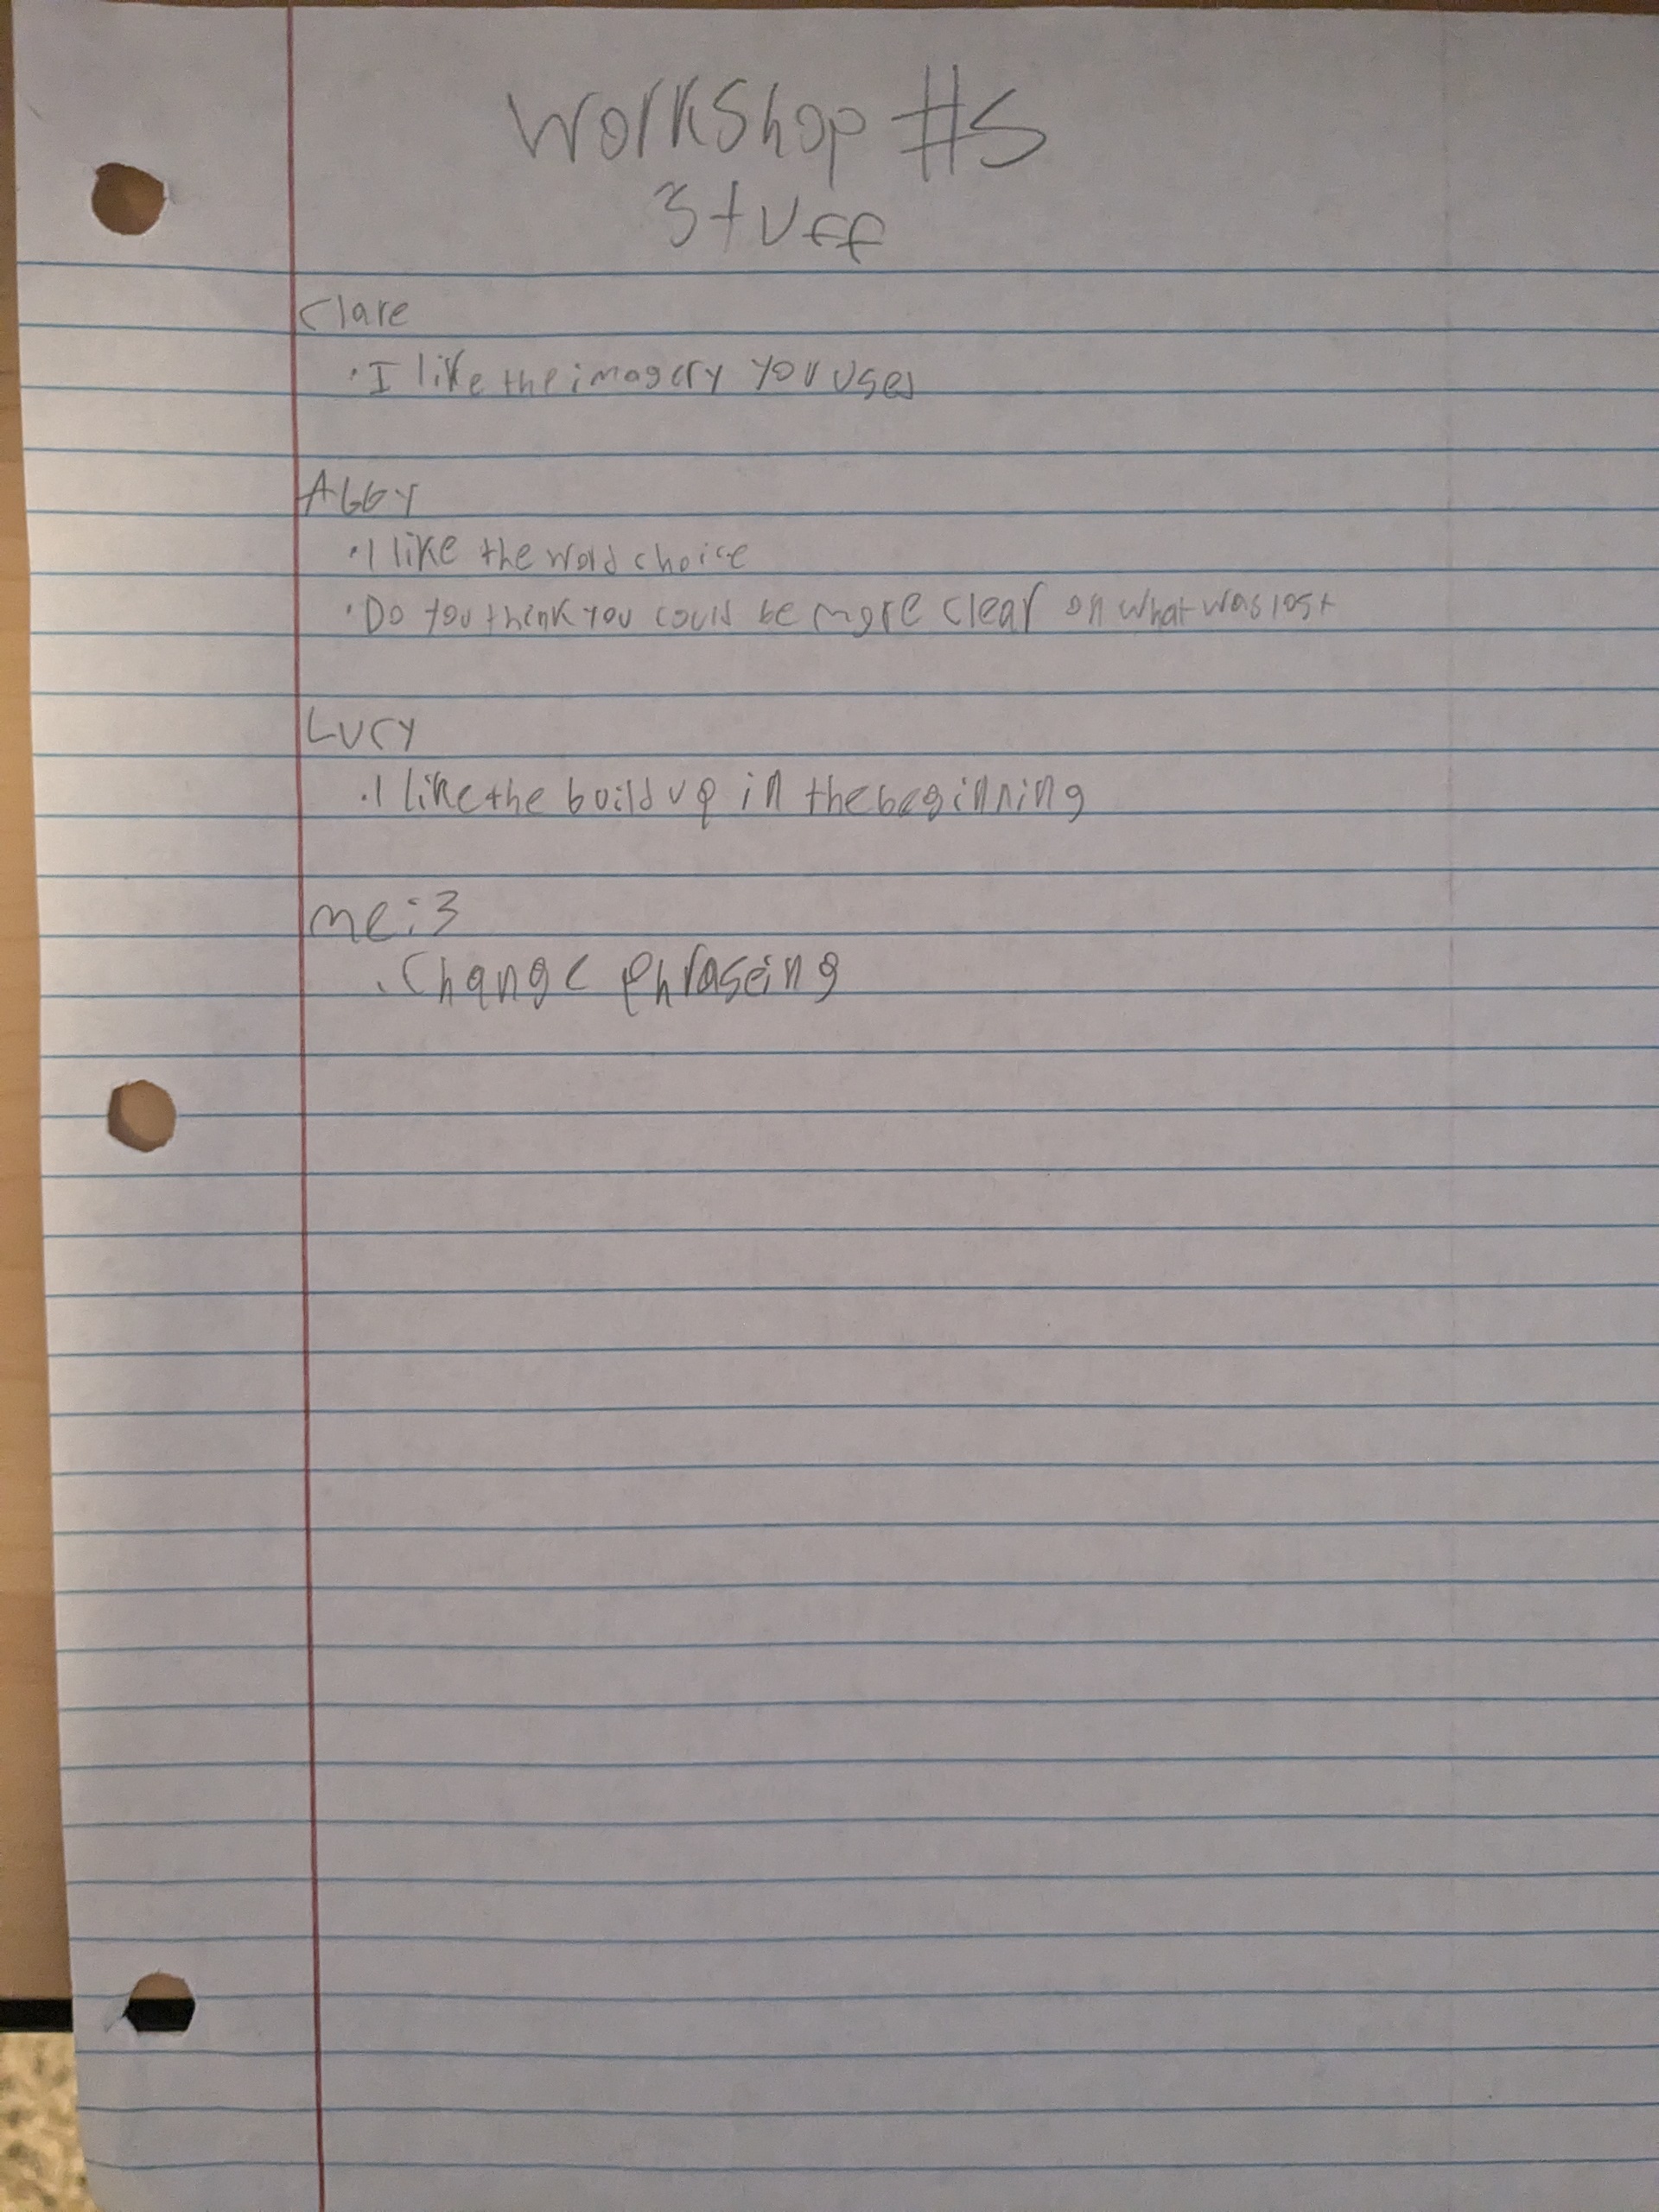 Workshop #5
Stuff
Clare
• I like the imagery you used
Abby
• I like the word choice
• Do you think you could be more clear on what was lost
Lucy
• I like the build up in the beginning
me :3
• Change phraseing